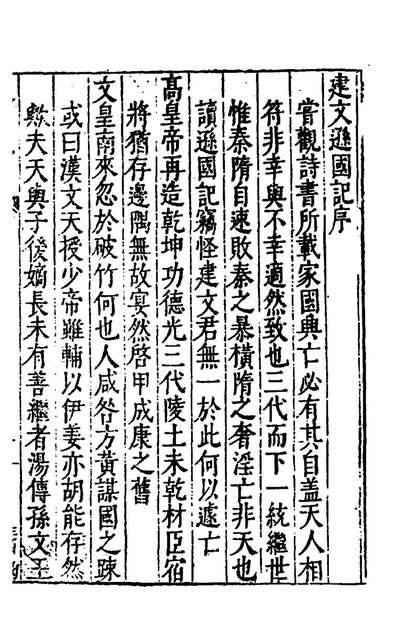 建文遜國記序
嘗觀詩書所載家國興亡必有其自盖天人相
符非幸與不幸適然致也三代而下一統繼世
惟秦隋自速敗秦之暴橫隋之奢淫亡非天也
讀遜國記竊怪建文君無一於此何以遽亡
高皇帝再造乾坤功德光三代陵土未乾材臣宿
將猶存邊隅無故宴然啓甲成康之舊
文皇南來忽於破竹何也人咸咎方黃謀國之踈
或曰漢文天授少帝雖輔以伊姜亦胡能存然
歟夫天與子後嫡長未有善繼者湯傳孫文王